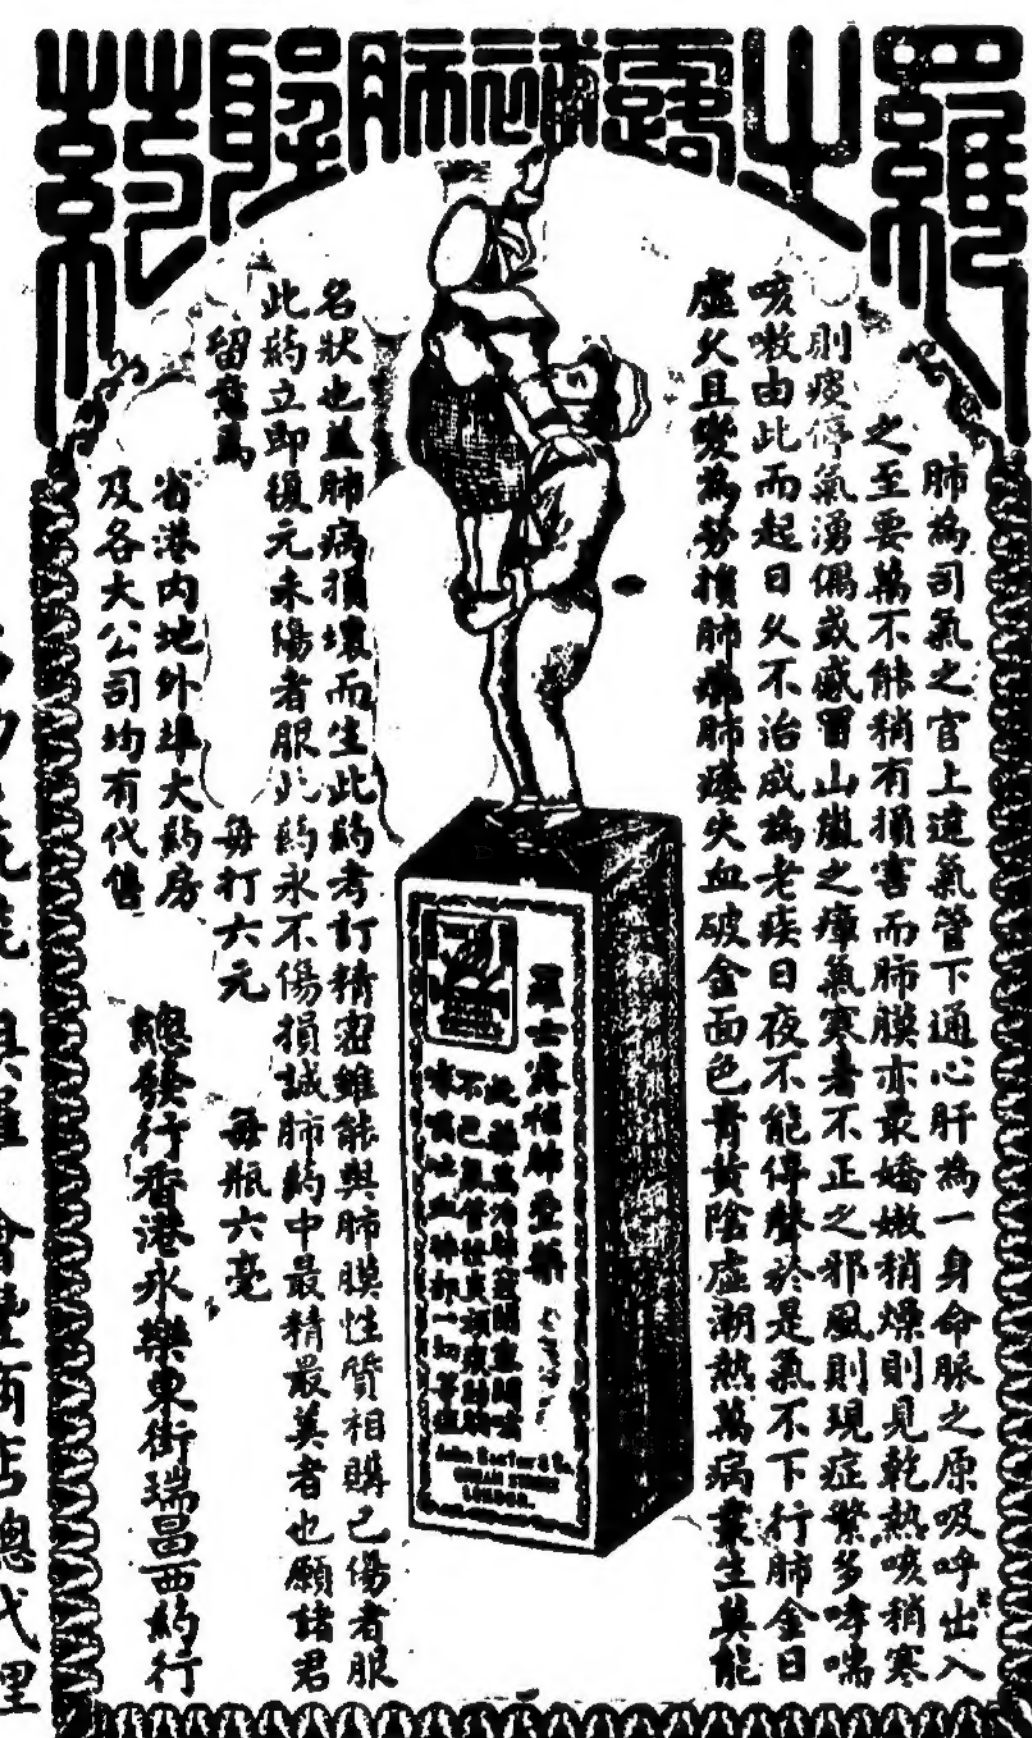 羅士露補肺聖药
肺為司氣之官上達氣管下通心肝為一身命脉之原吸呼出入
之至要萬不能稍有損害而肺膜亦最嬌嫩稍燥則見乾熱咳稍寒
則痰停氣湧偶或感冒山嵐之瘴氣寒暑不正之邪風則現症繁多哮喘
咳嗽由此而起日久不治成為老疾日夜不能停聲於是氣不下行肺金日
虛久且變為勞損肺癆肺痿失血破金面色青黃陰虛潮熱萬病叢生莫能
名狀也蓋肺病損壞而生此葯考訂精密雖能與肺膜性質相購已傷者服
此葯立即復元未傷者服此葯永不傷損誠肺葯中最精最美者也願諸君
留意焉
每打六元
每瓶六毫
省港內地外埠大葯房
及各大公司均有代售
總發行香港永樂東街瑞昌西約行
羅士露補肺聖藥
LONDON.
總代理